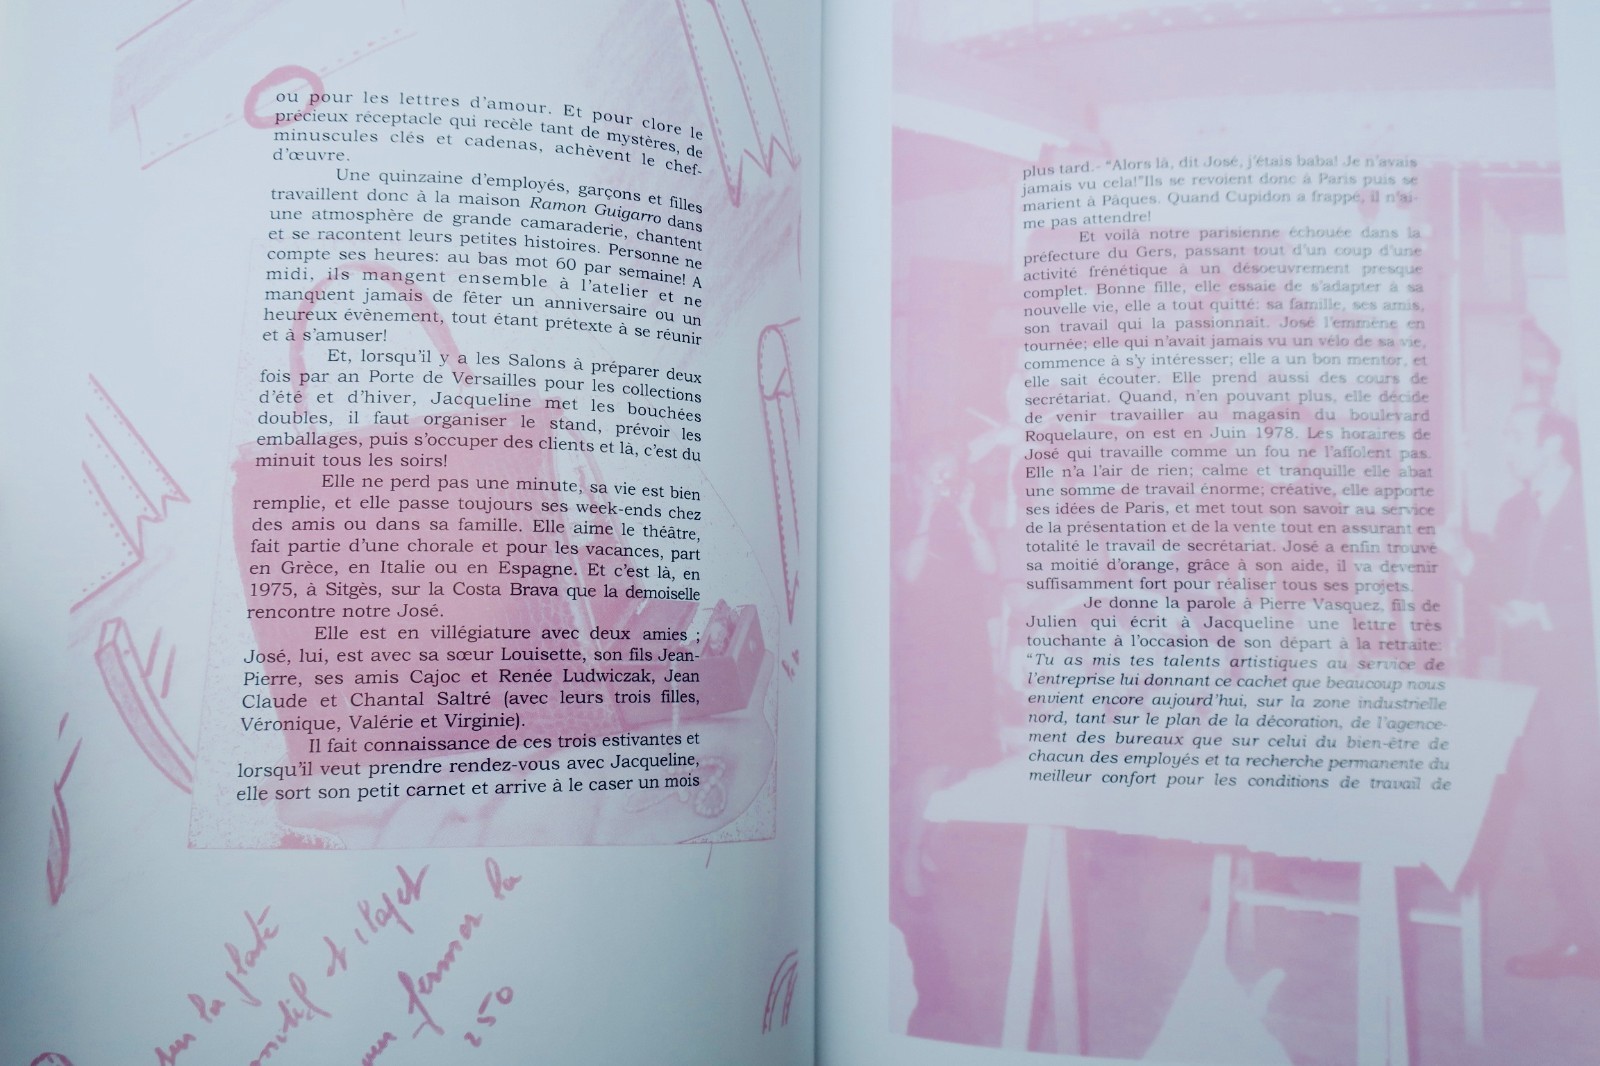 ou pour les lettres d'amour. Et pour clore le
précieux réceptacle qui recèle tant de mystères, de
minuscules clés et cadenas, achèvent le chef-
d'œuvre.
Une quinzaine d'employés, garçons et filles
travaillent donc à la maison Ramon Guigarro dans
une atmosphère de grande camaraderie, chantent
et se racontent leurs petites histoires. Personne ne
compte ses heures: au bas mot 60 par semaine! A
midi, ils mangent ensemble à l'atelier et ne
manquent jamais de fêter un anniversaire ou un
heureux évènement, tout étant prétexte à se réunir
et à s'amuser!
Et, lorsqu'il y a les Salons à préparer deux
fois par an Porte de Versailles pour les collections
d'été et d'hiver, Jacqueline met les bouchées
doubles, il faut organiser le stand, prévoir les
emballages, puis s'occuper des clients et là, c'est du
minuit tous les soirs!
Elle ne perd pas une minute, sa vie est bien
remplie, et elle passe toujours ses week-ends chez
des amis ou dans sa famille. Elle aime le théâtre,
fait partie d'une chorale et pour les vacances, part
en Grèce, en Italie ou en Espagne. Et c'est là, en
1975, à Sitgès, sur la Costa Brava que la demoiselle
rencontre notre José.
Elle est en villégiature avec deux amies ;
José, lui, est avec sa sœur Louisette, son fils Jean-
Pierre, ses amis Cajoc et Renée Ludwiczak, Jean
Claude et Chantal Saltré (avec leurs trois filles,
Véronique, Valérie et Virginie).
Il fait connaissance de ces trois estivantes et
lorsqu'il veut prendre rendez-vous avec Jacqueline,
elle sort son petit carnet et arrive à le caser un mois
sur la
et
fermer la
250
plus tard.- "Alors là, dit José, j'étais baba! Je n'avais
jamais vu cela!"Ils se revoient donc à Paris puis se
marient à Pâques. Quand Cupidon a frappé, il n'ai-
me pas attendre!
Et voilà notre parisienne échouée dans la
préfecture du Gers, passant tout d'un coup d'une
activité frénétique à un désoeuvrement presque
complet. Bonne fille, elle essaie de s'adapter à sa
nouvelle vie, elle a tout quitté: sa famille, ses amis,
son travail qui la passionnait. José l'emmène en
tournée; elle qui n'avait jamais vu un vélo de sa vie,
commence à s'y intéresser; elle a un bon mentor, et
elle sait écouter. Elle prend aussi des cours de
secrétariat. Quand, n'en pouvant plus, elle décide
de venir travailler au magasin du boulevard
Roquelaure, on est en Juin 1978. Les horaires de
José qui travaille comme un fou ne l'affolent pas.
Elle n'a l'air de rien; calme et tranquille elle abat
une somme de travail énorme; créative, elle apporte
ses idées de Paris, et met tout son savoir au service
de la présentation et de la vente tout en assurant en
totalité le travail de secrétariat. José a enfin trouvé
sa moitié d'orange, grâce à son aide, il va devenir
suffisamment fort pour réaliser tous ses projets.
Je donne la parole à Pierre Vasquez, fils de
Julien qui écrit à Jacqueline une lettre très
touchante à l'occasion de son départ à la retraite:
"Tu as mis tes talents artistiques au service de
l'entreprise lui donnant ce cachet que beaucoup nous
envient encore aujourd'hui, sur la zone industrielle
nord, tant sur le plan de la décoration, de l'agence-
ment des bureaux que sur celui du bien-être de
chacun des employés et ta recherche permanente du
meilleur confort pour les conditions de travail de